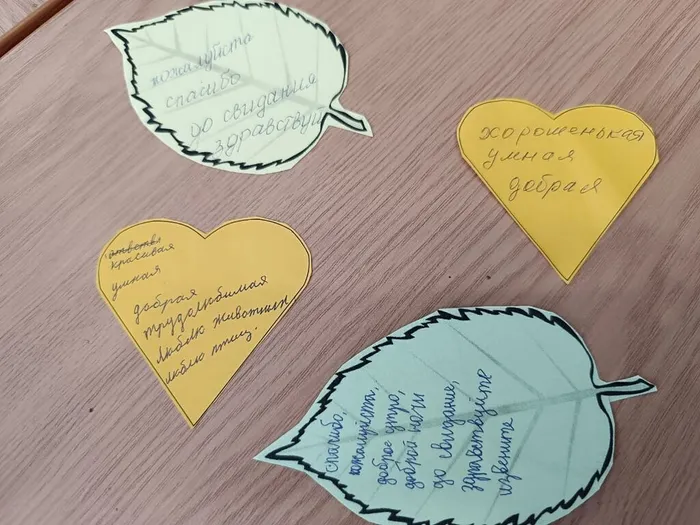 пожалуйста
спасибо
до свидания
здравствуй
хорошенькая
умная
добрая
красивая
умная
добрая
трудолюбимая
люблю животных
люблю птиц.
спасибо,
пожалуйста,
доброе утро,
доброй ночи
до свидание,
здравствуйте
извените